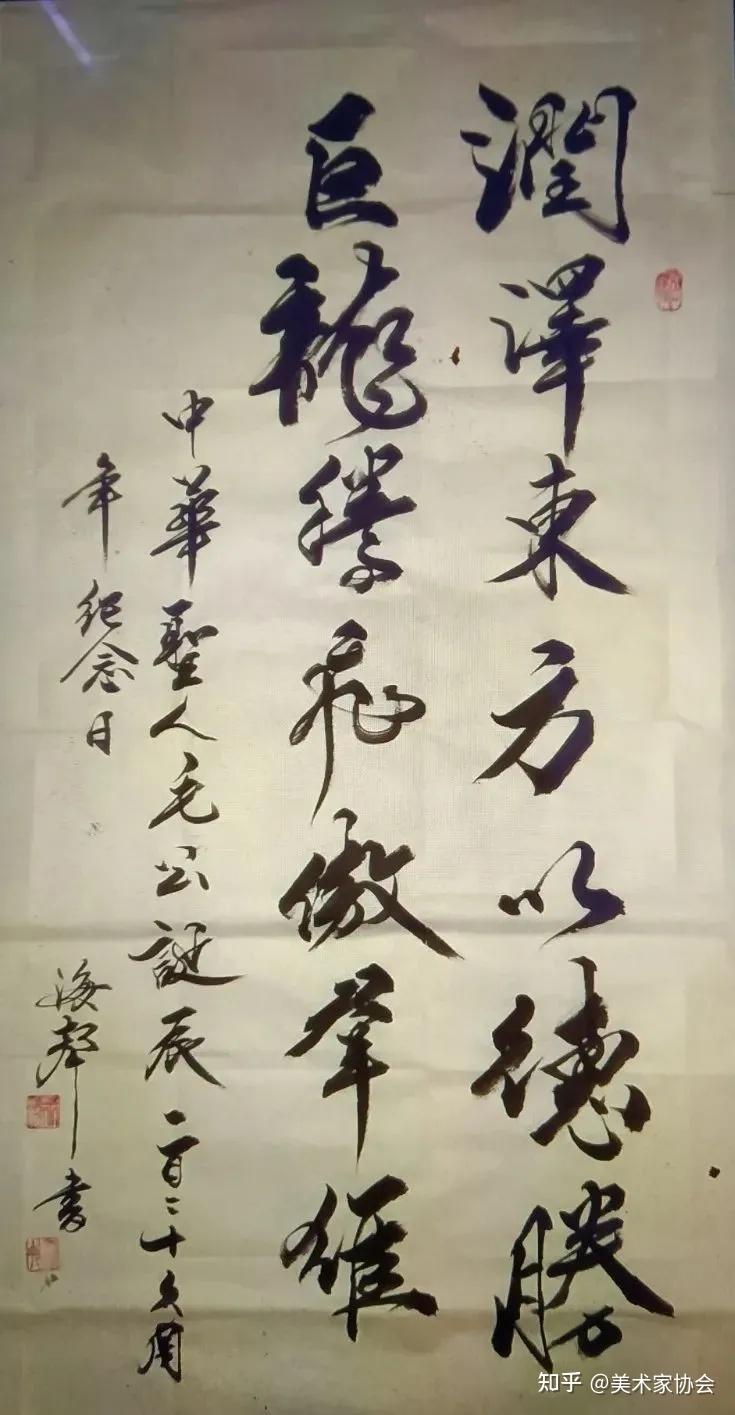 潤澤東方以德勝
巨龍騰飛傲羣雄
中華聖人毛公誕辰一百二十八周
年紀念日
海聲書
知乎 @美术家协会